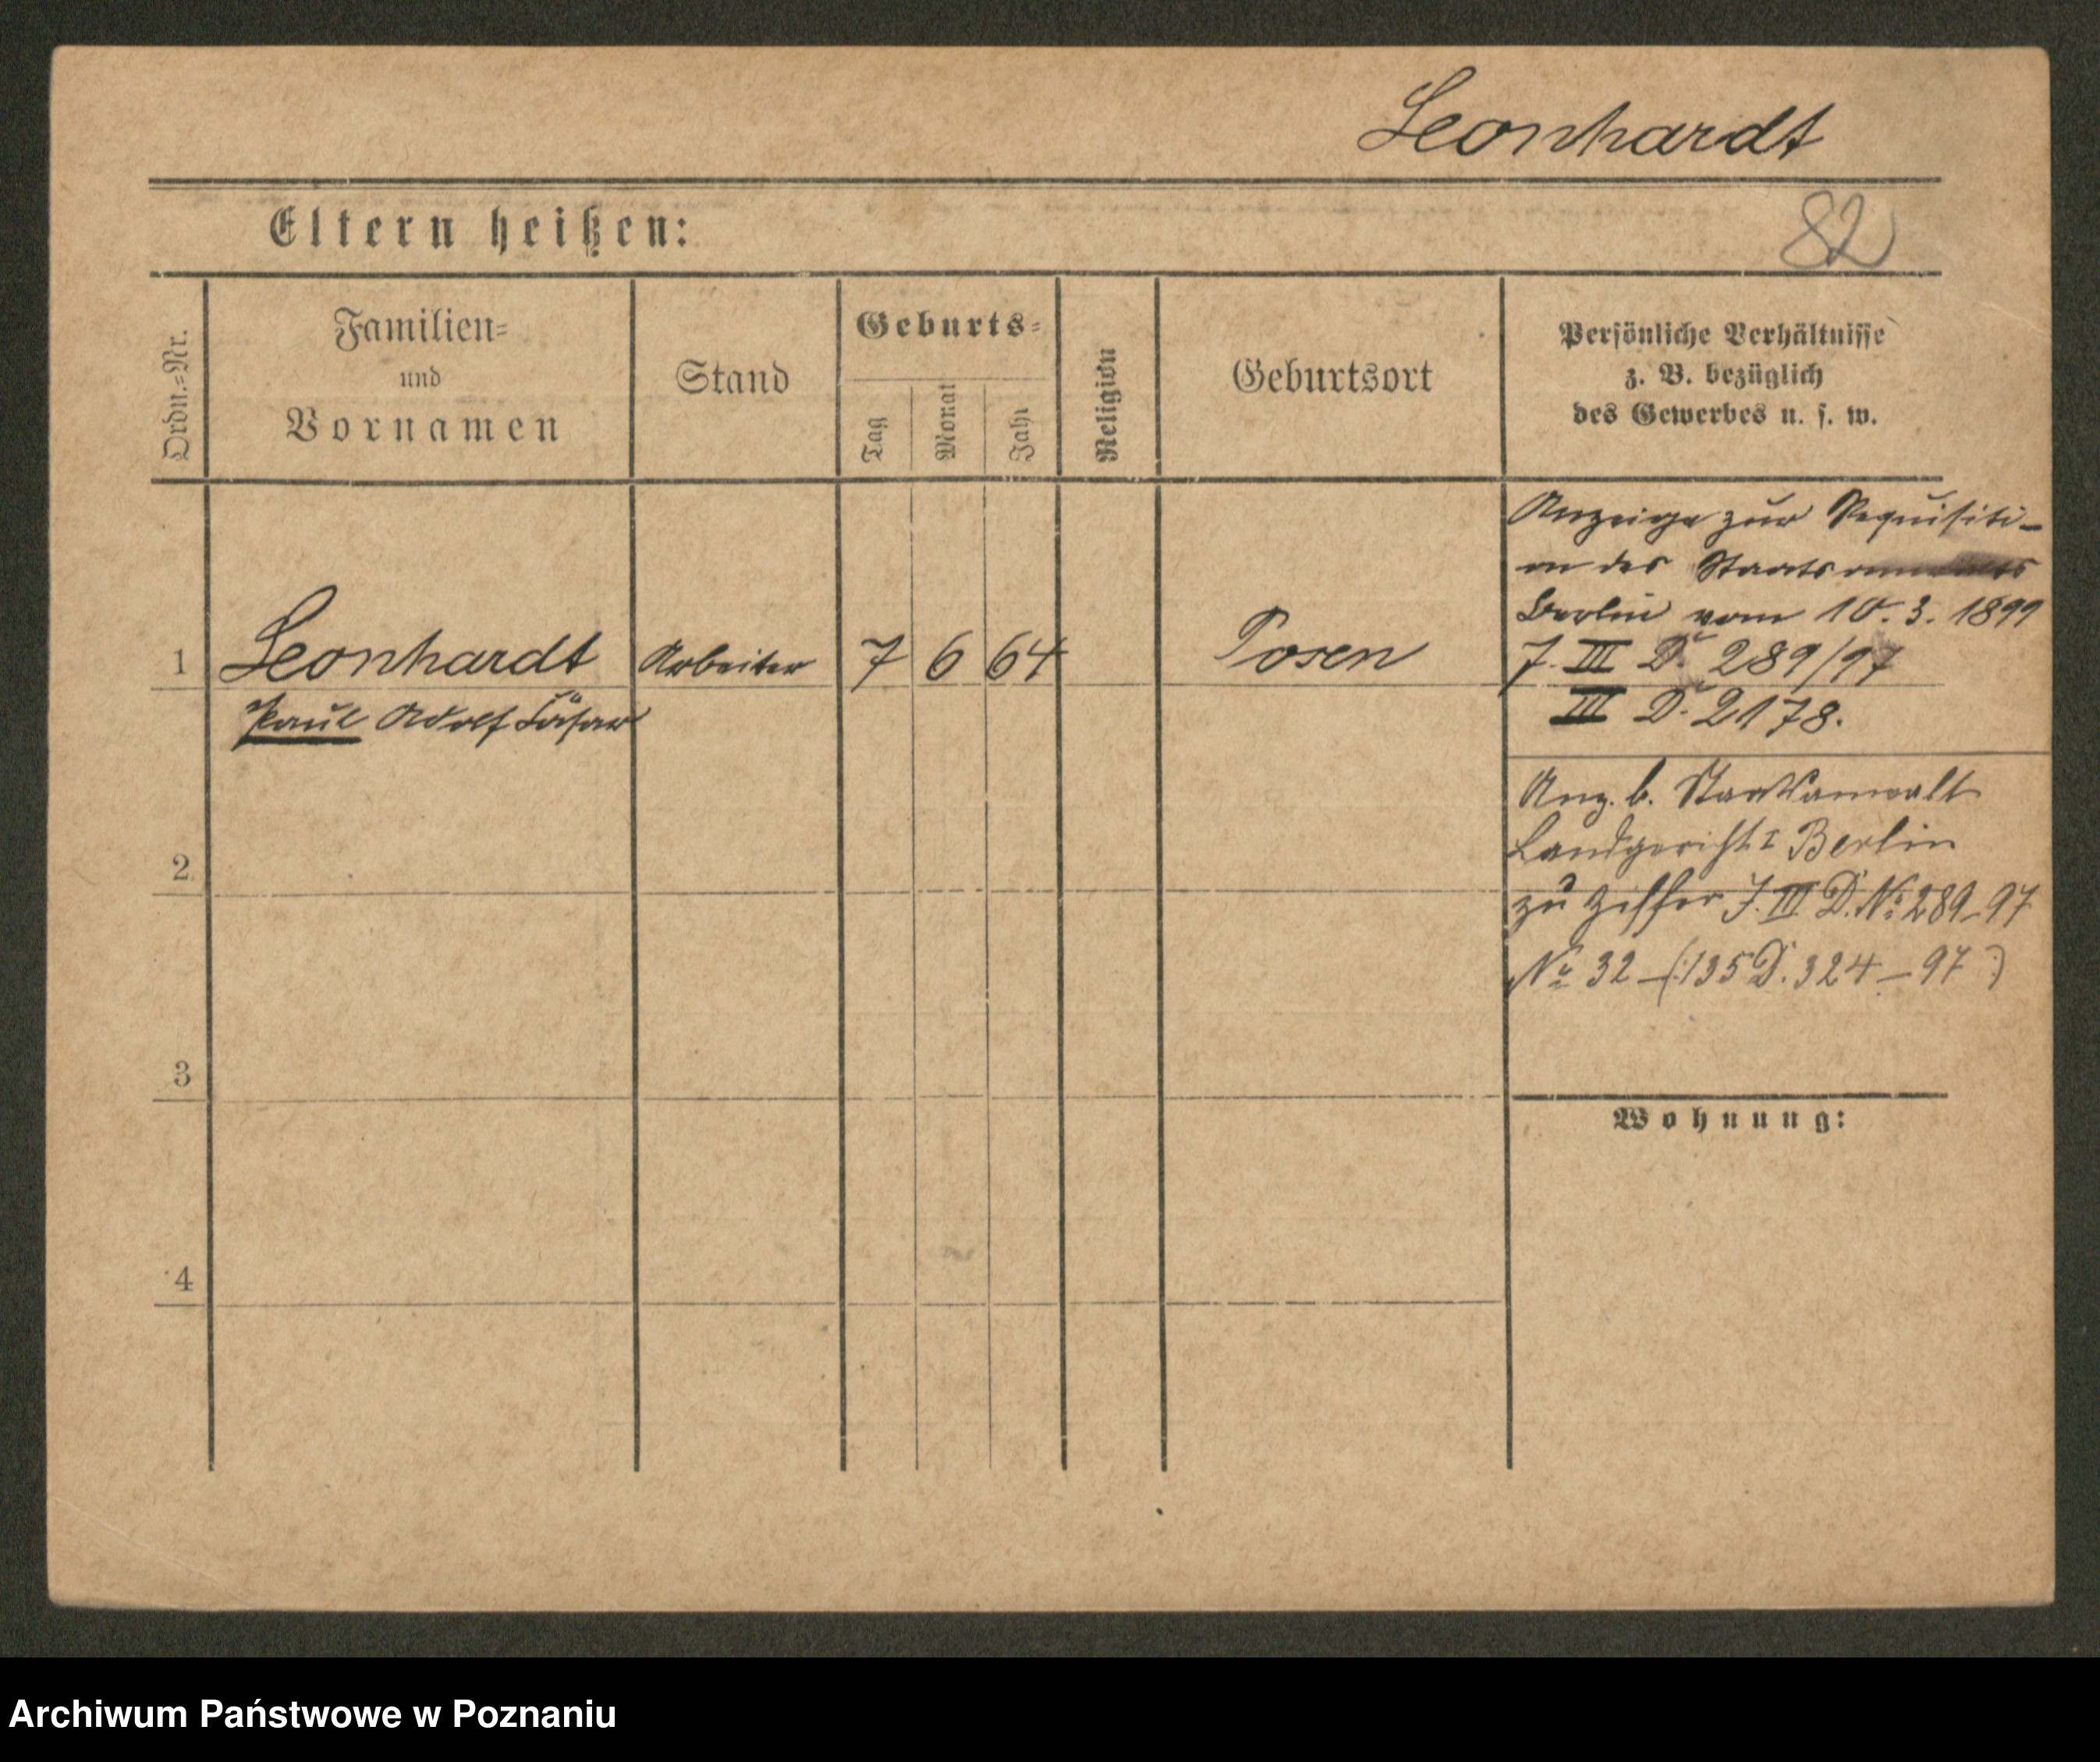 Leonhardt
Eltern heißen:
82
Ordn.=Nr.
Familien=
und
Vornamen
Stand
Geburts=
Tag
Monat
Jahr
Religion
Geburtsort
Persönliche Verhältnisse
z. B. bezüglich
des Gewerbes u. s. w.
1
Leonhardt
Paul Adolf Cäsar
Arbeiter
7
6
64
Posen
Anzeige zur Requisiti-
on des Staatsanwalts
Berlin vom 10.3.1899
J. III D. 289/97
III D. 2178.
Anz. b. Staatsanwalt
Landgericht I Berlin
zu Ziffer J. III D. No 289-97
No 32 - (:135 D. 324 - 97:)
2
3
Wohnung:
4
Archiwum Państwowe w Poznaniu